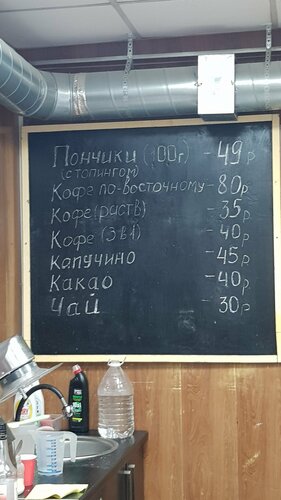 Пончики (100г) - 49р
(с топингом)
Кофе по-восточному - 80р
Кофе (раств) - 35р
Кофе (3в1) - 40р
Капучино - 45р
Какао - 40р
Чай 30р